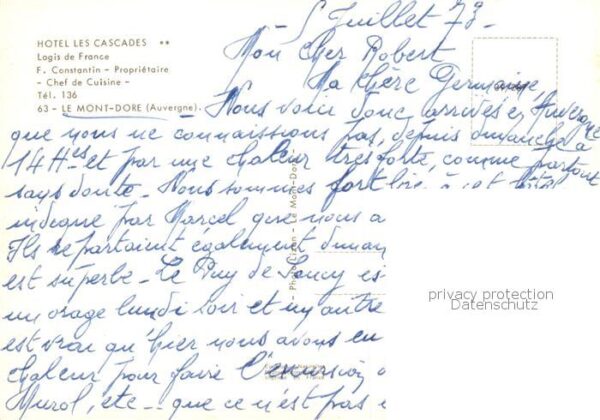 HOTEL LES CASCADES **
Logis de France
F. Constantin - Propriétaire
- Chef de Cuisine -
Tél. 136
63 - LE MONT-DORE (Auvergne).
5 Juillet 73 -
Mon cher Robert
Ma chère Germaine,
- Nous voici donc arrivés en Auvergne
que nous ne connaissions pas, depuis dimanche à
14 Hes et par une chaleur très forte, comme partout
sans doute - Nous sommes fort bien à cet hôtel
indiqué par Marcel que nous a
Ils repartaient également diman
est superbe - Le Puy de Sancy es
un orage lundi soir et un autre
est vrai qu'hier nous avons eu
chaleur pour faire l'excursion
Murol, etc -- que ce n'est pas
Le Mont-Dore
privacy protection
Datenschutz